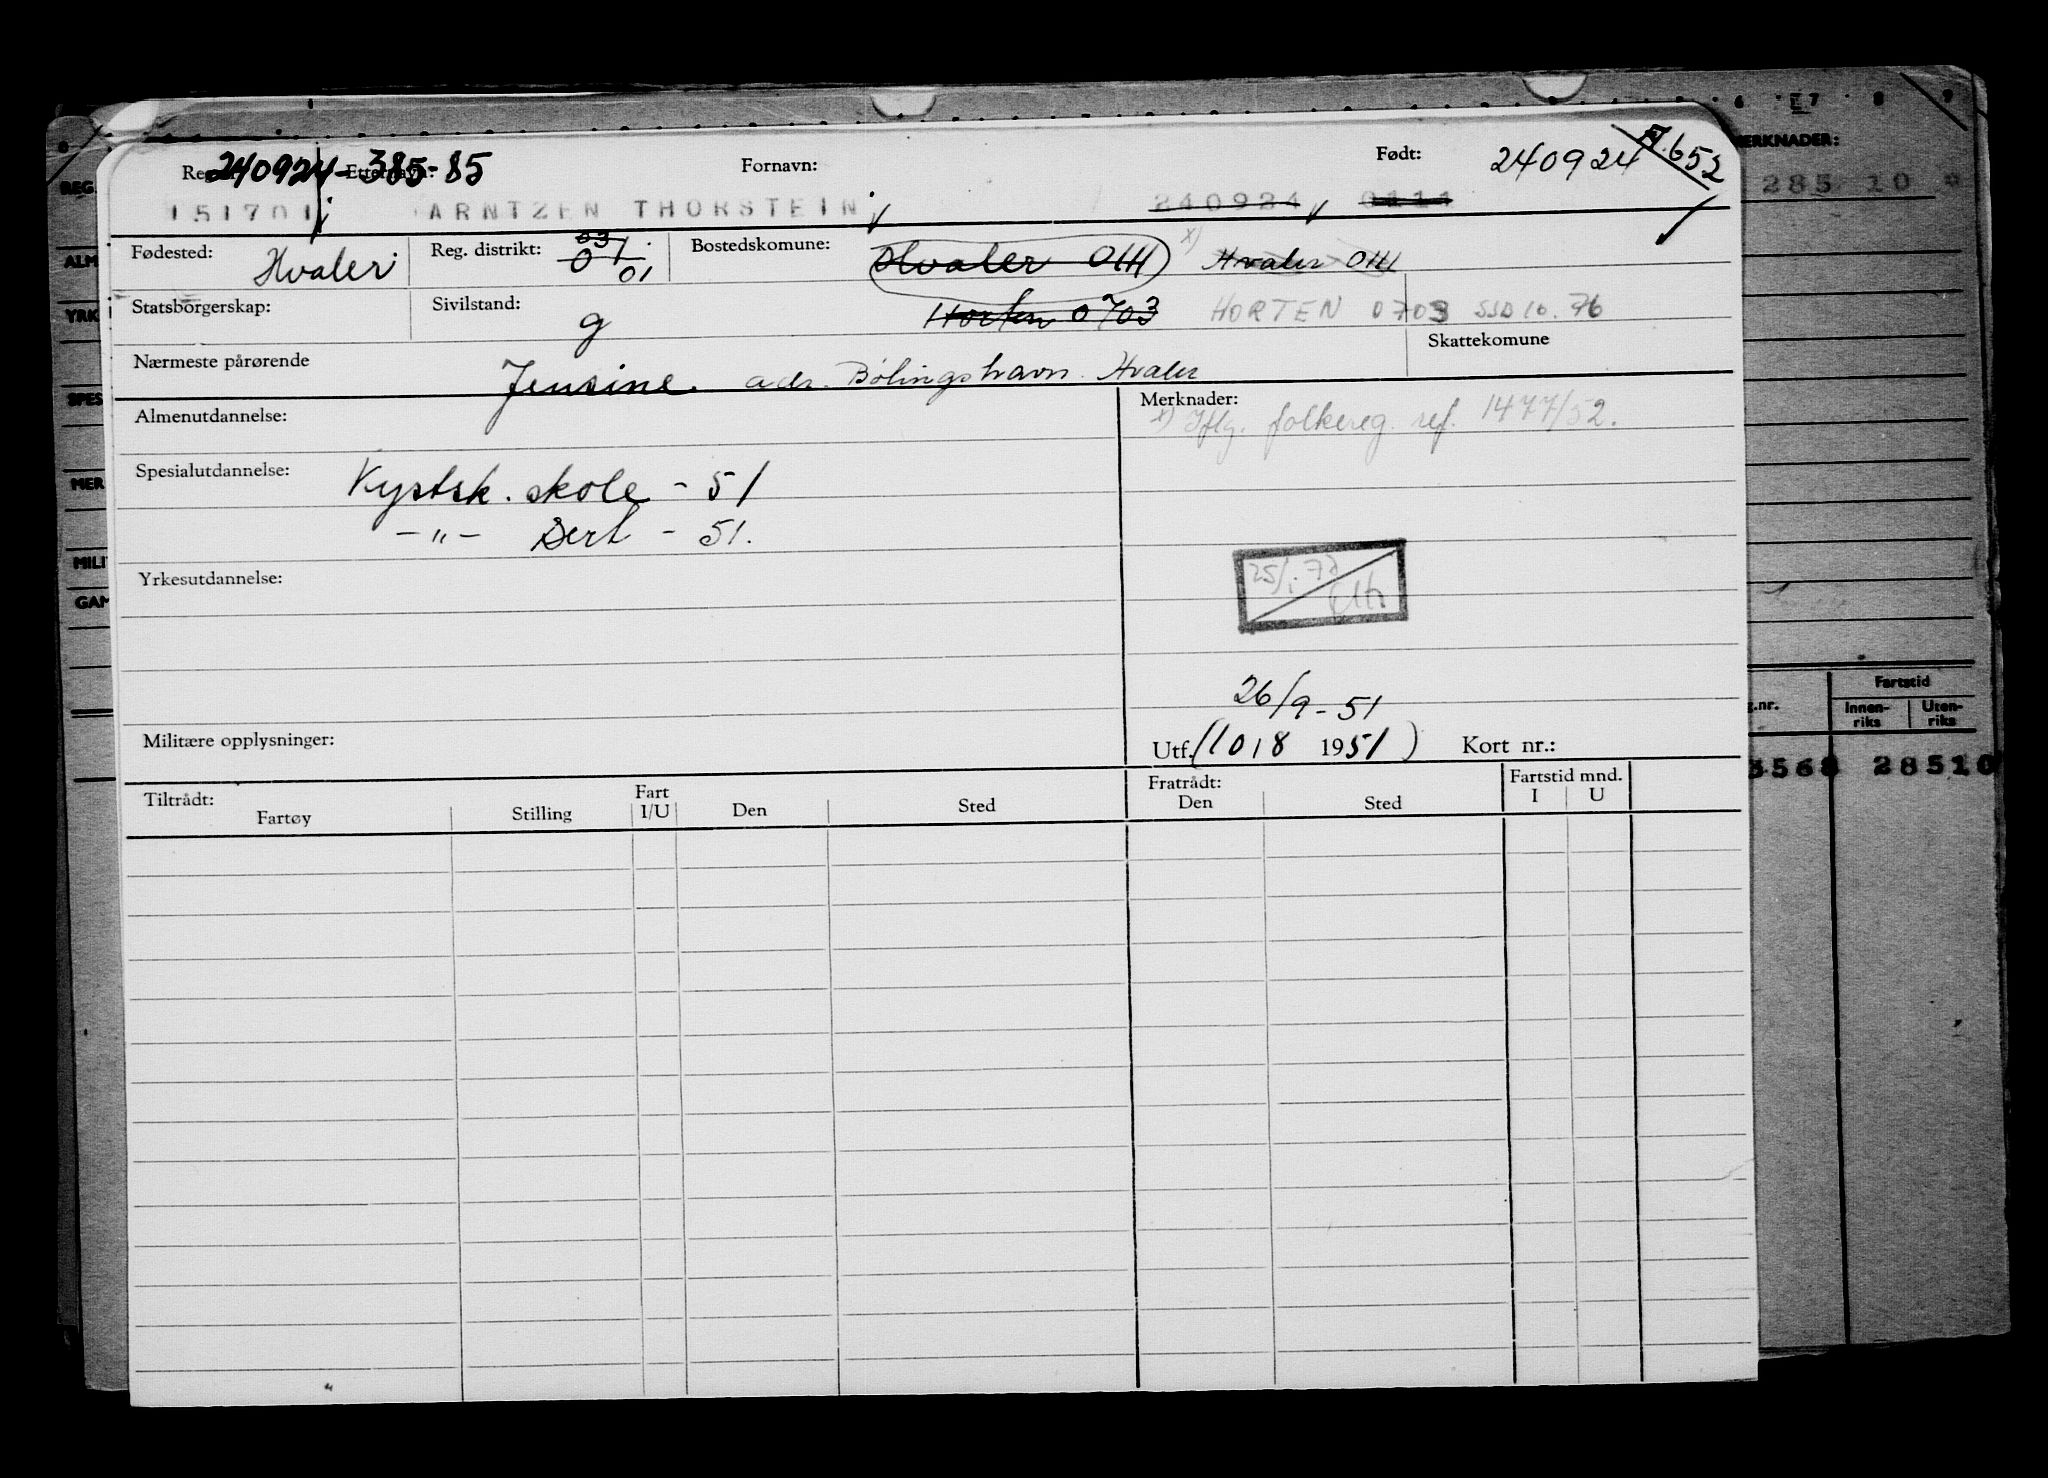 Reg. nr. Etternavn: Fornavn: Født:
240924-385-85 240924 652
151701 ARNTZEN THORSTEIN 240924 0111
Fødested: Hvaler Reg. distrikt: 03 01 01 Bostedskomune: Hvaler 0111 x) Hvaler 0111
Statsborgerskap: Sivilstand: g Horten 0703 HORTEN 0703 SSD 10.76
Skattekomune
Nærmeste pårørende Jensine. adr. Bølingshavn. Hvaler
Almenutdannelse: Merknader:
x) Iflg. folkereg. ref. 1477/52.
Spesialutdannelse: Kystsk. skole - 51
-"- Sert - 51.
Yrkesutdannelse: 25/1 72
26/9-51
Militære opplysninger: Utf. (10/8 1951) Kort nr.:
Tiltrådt: Fratrådt: Fartstid mnd.
Fartøy Stilling Fart I/U Den Sted Den Sted I U
REG.
ALM
YRK
SPES
MER
MILI
GAM
6 7 8 9
MERKNADER:
285 10
Fartstid
g.nr. Innen-riks Uten-riks
3568 28510